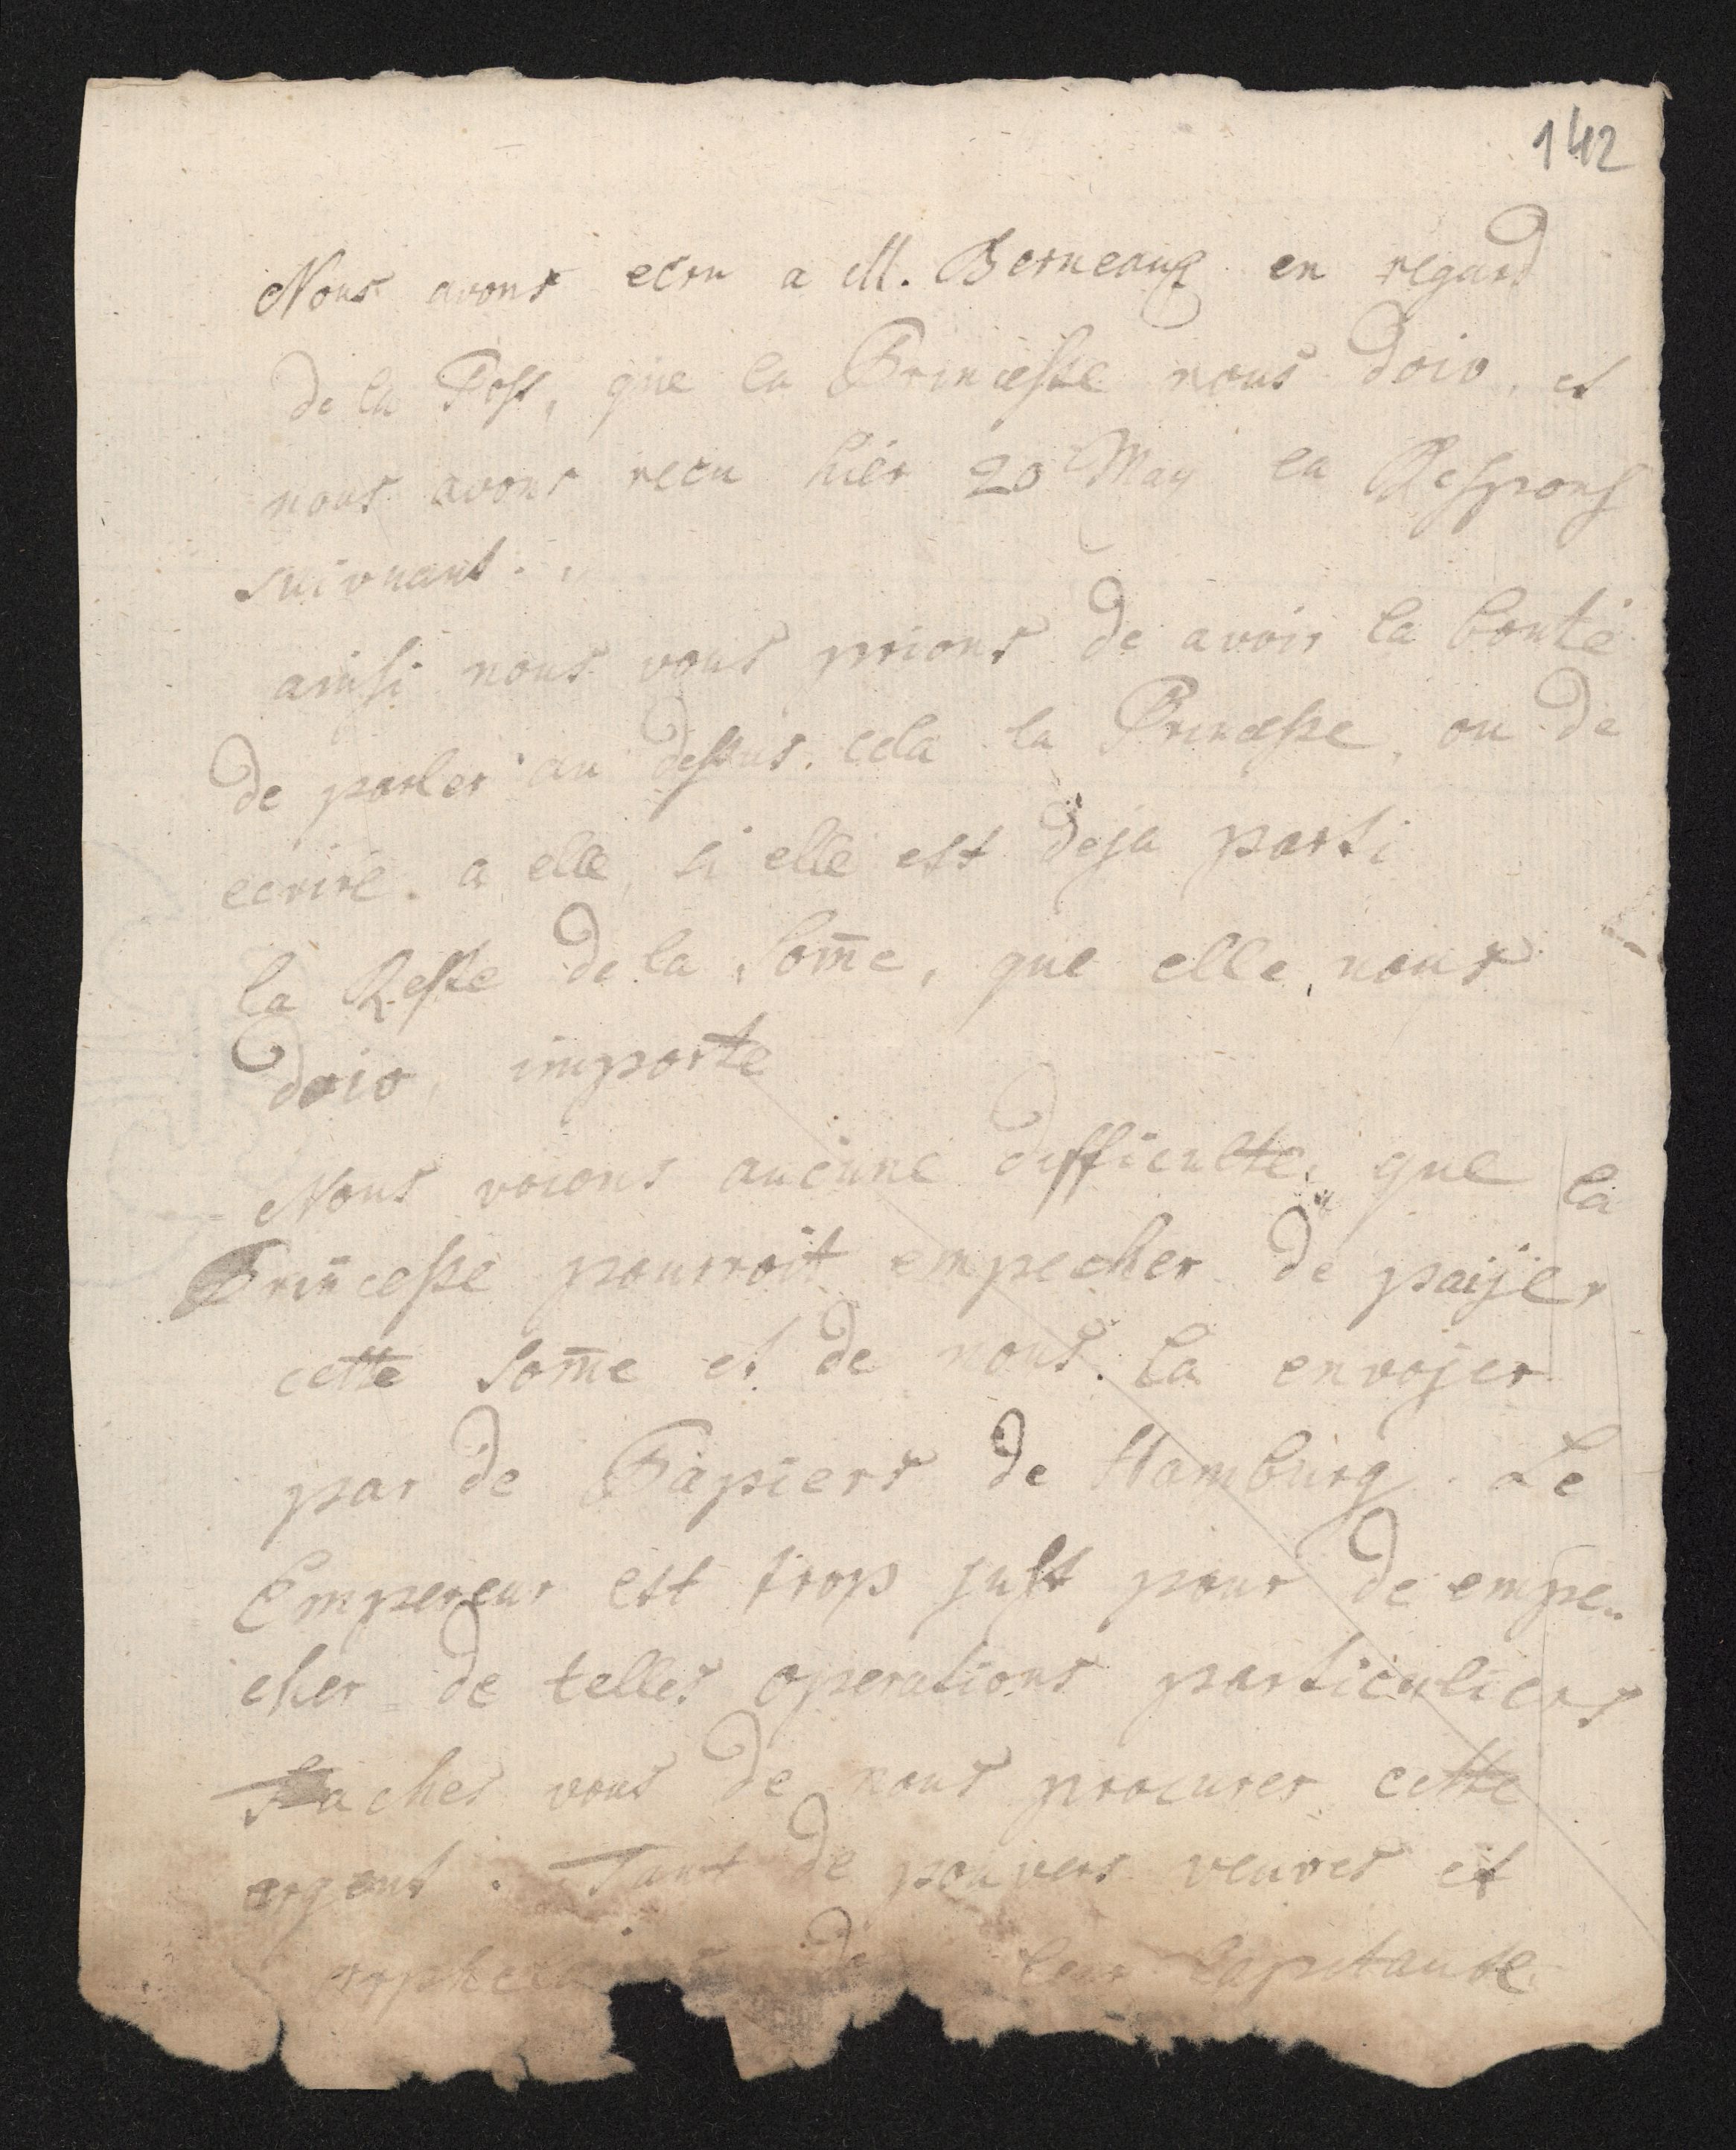 142
Nous avons ecru a M. Berneaux en regard
de la Post, que la Princesse nous doiv, et
nous avons recu hier 20 May la Respons
suivnant.
ainsi nous vous prions de avoir la bonté
de parler au dessus cela la Princesse, ou de
ecrire a elle, si elle est deja parti
la Reste de la Som̄e, que elle nous
doiv, importe
Nous voions aucune difficulte, que la
Princesse pourroit empecher de paijer
cette Som̄e et de nous la envojer
par de Papiers de Hamburg. Le
Empereur est trop just pour de empe-
cher de telles operations particuliers
Taches vous de nous procurer cette
argent. Tant de pouvers veuves et
de leur Capitaux